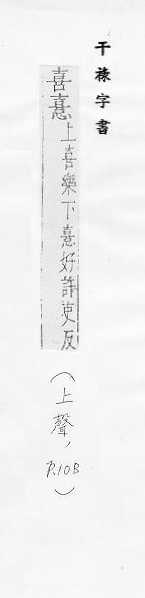 干祿字書
喜憙上喜樂下憙好許吏反
(上聲,
P.10B)